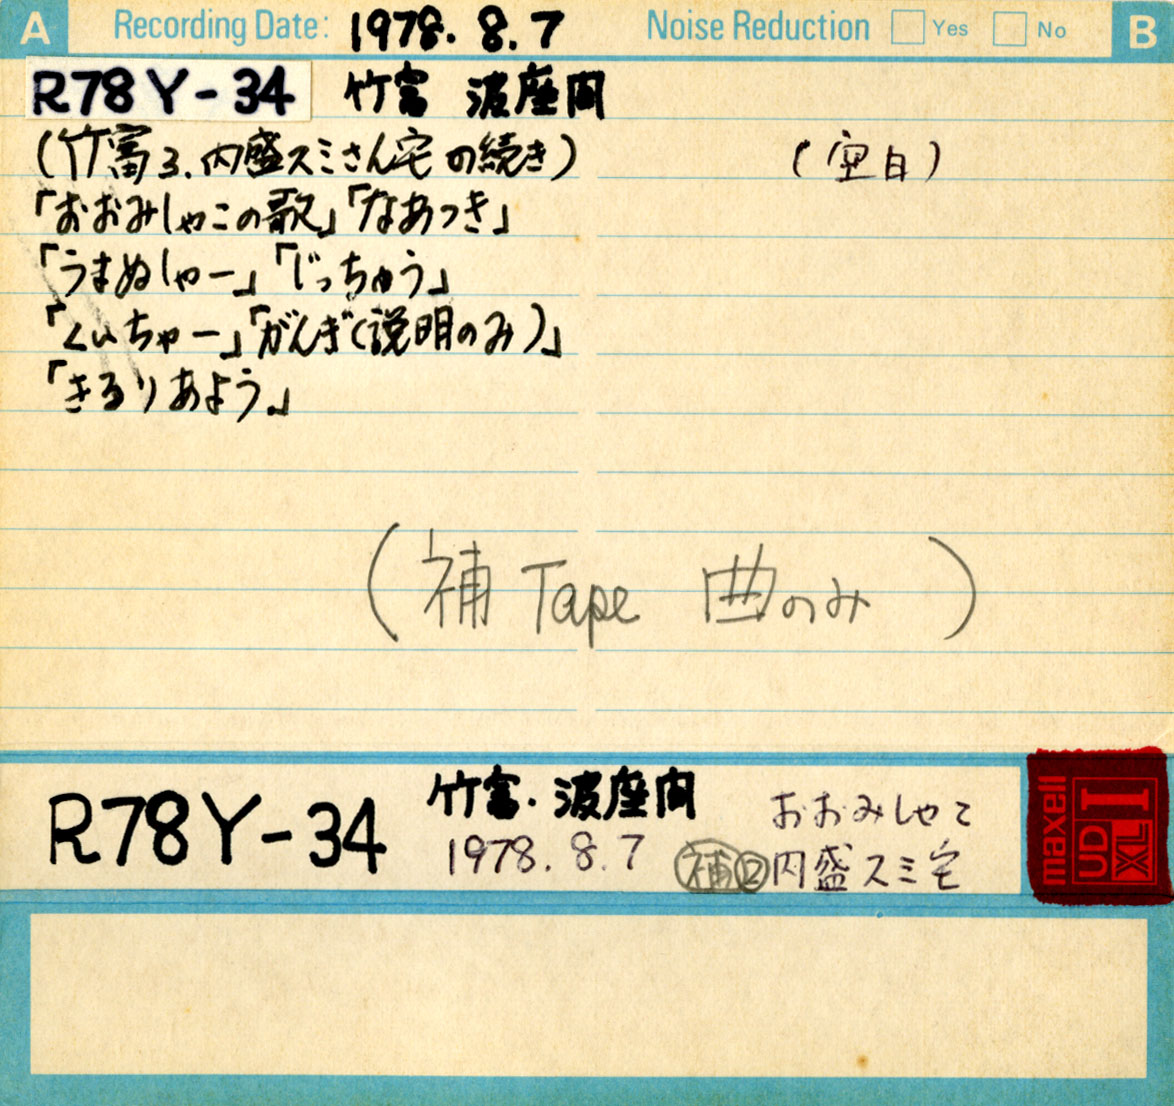 A Recording Date: 1978. 8. 7 Noise Reduction Yes No B
R78Y-34 竹富 波座間
(竹富3.内盛スミさん宅の続き)
(空白)
「おおみしゃこの歌」「なあつき」
「うまぬしゃー」「じっちゅう」
「くいちゃー」「がんぎ(説明のみ)」
「きるりあよう。」
(補 Tape 曲のみ)
R78Y-34
竹富・波座間
1978. 8. 7
補②
おおみしゃこ
内盛スミ宅
maxell
UD
XL I